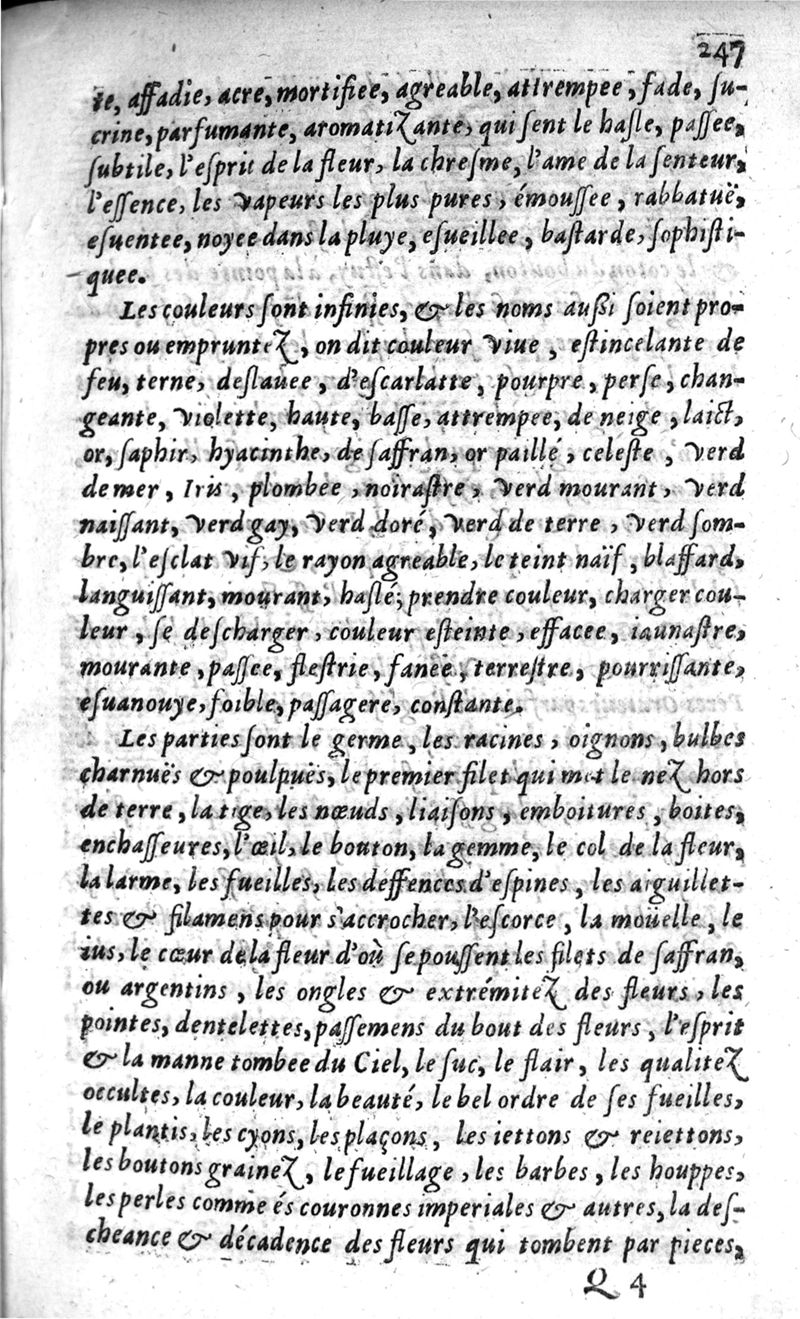 247
te, affadie, acre, mortifiee, agreable, attrempee, fade, ſu-
crine, parfumante, aromatiZante, qui ſent le haſle, paſſee,
ſubtile, l'eſprit de la fleur, la chreſme, l'ame de la ſenteur,
l'eſſence, les vapeurs les plus pures, émouſſee, rabbatuë,
eſuentee, noyee dans la pluye, eſueillee, baſtarde, ſophiſti-
quee.
Les couleurs ſont infinies, & les noms auſſi ſoient pro-
pres ou emprunteZ, on dit couleur viue, eſtincelante de
feu, terne, deſlauee, d'eſcarlatte, pourpre, perſe, chan-
geante, violette, haute, baſſe, attrempee, de neige, laict,
or, ſaphir, hyacinthe, de ſaffran, or paillé, celeſte, verd
de mer, Iris, plombee, noiraſtre, verd mourant, verd
naiſſant, verd gay, verd doré, verd de terre, verd ſom-
bre, l'eſclat vif, le rayon agreable, le teint naïf, blaffard,
languiſſant, mourant, haſlé; prendre couleur, charger cou-
leur, ſe deſcharger, couleur eſteinte, effacee, iaunaſtre,
mourante, paſſee, fleſtrie, fanee, terreſtre, pourriſſante,
eſuanouye, foible, paſſagere, conſtante.
Les parties ſont le germe, les racines, oignons, bulbes
charnuës & poulpuës, le premier filet qui met le neZ hors
de terre, la tige, les nœuds, liaiſons, emboitures, boites,
enchaſſeures, l'œil, le bouton, la gemme, le col de la fleur,
la larme, les fueilles, les deffences d'eſpines, les aiguillet-
tes & filamens pour s'accrocher, l'eſcorce, la moüelle, le
ius, le cœur de la fleur d'où ſe pouſſent les filets de ſaffran,
ou argentins, les ongles & extrémiteZ des fleurs, les
pointes, dentelettes, paſſemens du bout des fleurs, l'eſprit
& la manne tombee du Ciel, le ſuc, le flair, les qualiteZ
occultes, la couleur, la beauté, le bel ordre de ſes fueilles,
le plantis, les cyons, les plaçons, les iettons & reiettons,
les boutons graineZ, le fueillage, les barbes, les houppes,
les perles comme és couronnes imperiales & autres, la deſ-
cheance & décadence des fleurs qui tombent par pieces,
Q 4